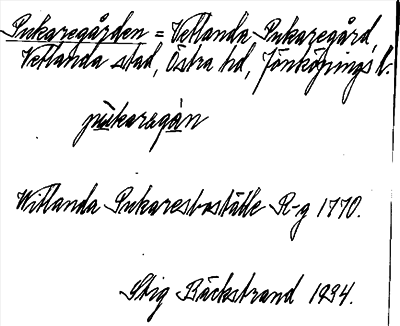 Pukaregården = Vetlanda Pukaregård,
Vetlanda stad, Östra hd, Jönköpings l.
pukaregån
Witlanda Pukaresboställe R-g 1770.
Stig Bäckstrand 1934.